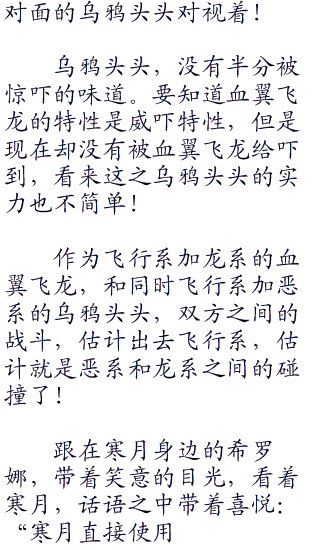 对面的乌鸦头头对视着！
乌鸦头头，没有半分被
惊吓的味道。要知道血翼飞
龙的特性是威吓特性，但是
现在却没有被血翼飞龙给吓
到，看来这之乌鸦头头的实
力也不简单！
作为飞行系加龙系的血
翼飞龙，和同时飞行系加恶
系的乌鸦头头，双方之间的
战斗，估计出去飞行系，估
计就是恶系和龙系之间的碰
撞了！
跟在寒月身边的希罗
娜，带着笑意的目光，看着
寒月，话语之中带着喜悦：
“寒月直接使用